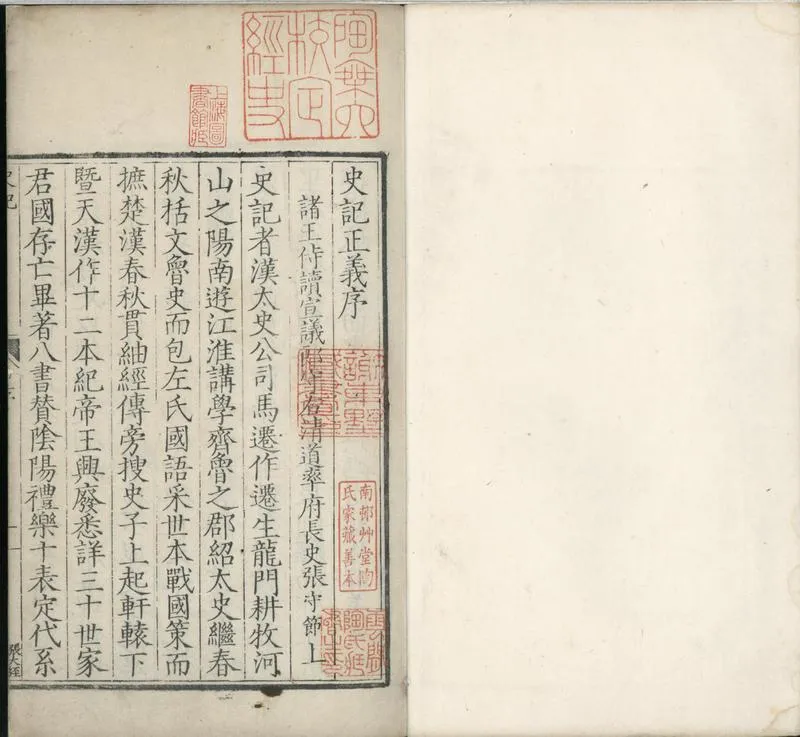 史記正義序
諸王侍讀宣議郎守右清道率府長史張守節上
史記者漢太史公司馬遷作遷生龍門耕牧河
山之陽南遊江淮講學齊魯之郡紹太史繼春
秋括文魯史而包左氏國語采世本戰國策而
摭楚漢春秋貫紬經傳旁搜史子上起軒轅下
暨天漢作十二本紀帝王興廢悉詳三十世家
君國存亡畢著八書贊陰陽禮樂十表定代系
史記
張大經
上海圖
書館藏
南邨艸堂陶
氏家藏善本
校定
經史